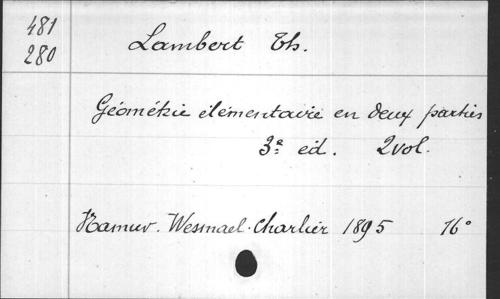 481
280
Lambert Th.
Géométrie élémentaire en deux parties
3e ed. 2vol.
Namur. Wesmael-Charlier 1895 16°